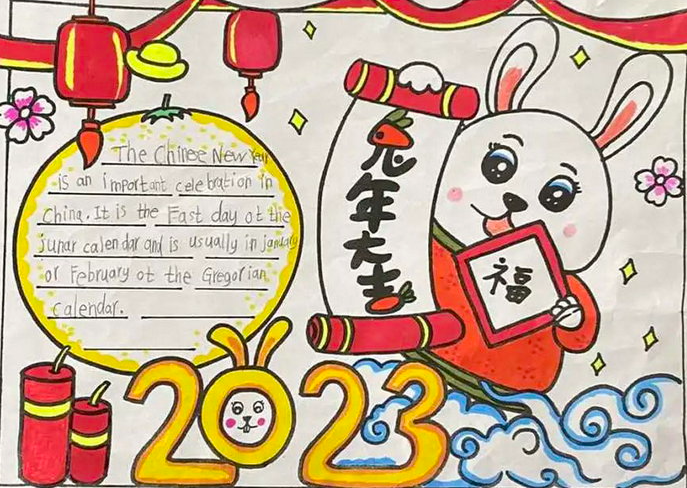 The Chinee New Year
is an important celebration in
China. It is the East day ot the
junar calendar and is usually in january
or February ot the Gregorian
calendar.
兔年大吉
福
2023